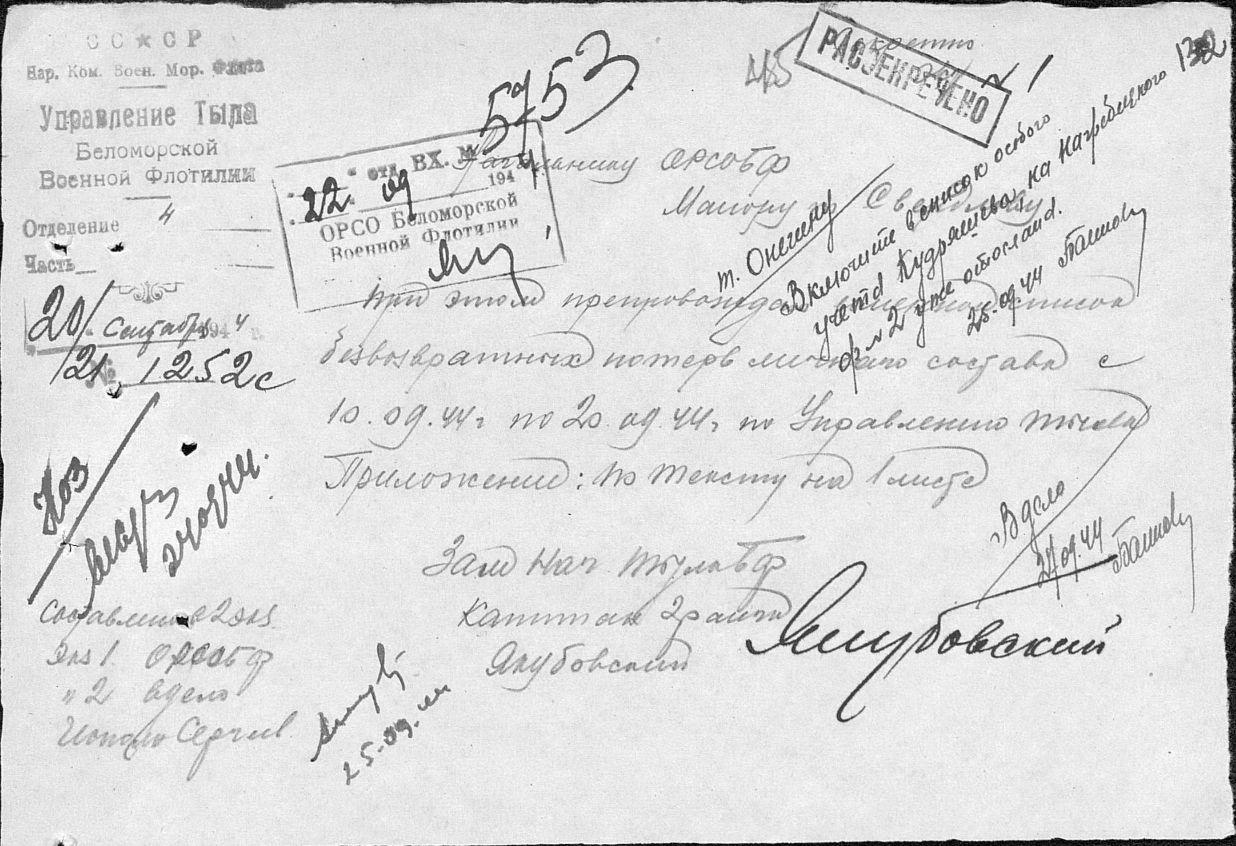 СССР
Нар. Ком. Воен. Мор. Флота
Управление Тыла
Беломорской
Военной Флотилии
Отделение 4
Часть
20/ Сентября 1944 г.
/21 № 1252с
Секретно
РАССЕКРЕЧЕНО
45
132
5753
отд. ВХ. №
"22" 09 1944
ОРСО Беломорской
Военной Флотилии
Начальнику ОРСО БФ
Майору
т. Онегину
Включите в список особого
учета Кудряшева на Нагребецкого
ф. № 2 уже отослана.
25.09.44
При этом препровождаю список
безвозвратных потерь личного состава с
10.09.44 г по 20.09.44 г по Управлению тыла
Приложение: по тексту на 1 листе
В дело
09.44
Зам Нач Тыла БФ
Капитан 2 ранга
Якубовский
Якубовский
Составлено в 2 экз
экз 1 ОРСО БФ
" 2 в дело
25.09.44